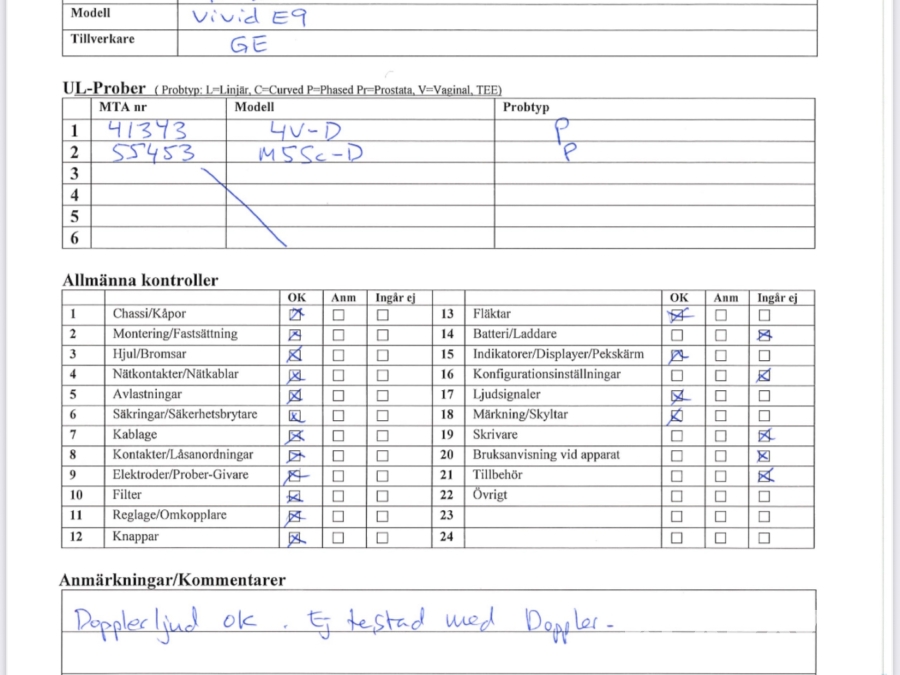 Modell Vivid E9
Tillverkare GE
UL-Prober ( Probtyp: L=Linjär, C=Curved P=Phased Pr=Prostata, V=Vaginal, TEE)
MTA nr Modell Probtyp
1 41343 4V-D P
2 55453 M5Sc-D P
3
4
5
6
Allmänna kontroller
OK Anm Ingår ej OK Anm Ingår ej
1 Chassi/Kåpor 13 Fläktar
2 Montering/Fastsättning 14 Batteri/Laddare
3 Hjul/Bromsar 15 Indikatorer/Displayer/Pekskärm
4 Nätkontakter/Nätkablar 16 Konfigurationsinställningar
5 Avlastningar 17 Ljudsignaler
6 Säkringar/Säkerhetsbrytare 18 Märkning/Skyltar
7 Kablage 19 Skrivare
8 Kontakter/Låsanordningar 20 Bruksanvisning vid apparat
9 Elektroder/Prober-Givare 21 Tillbehör
10 Filter 22 Övrigt
11 Reglage/Omkopplare 23
12 Knappar 24
Anmärkningar/Kommentarer
Dopplerljud ok. Ej testad med Doppler-